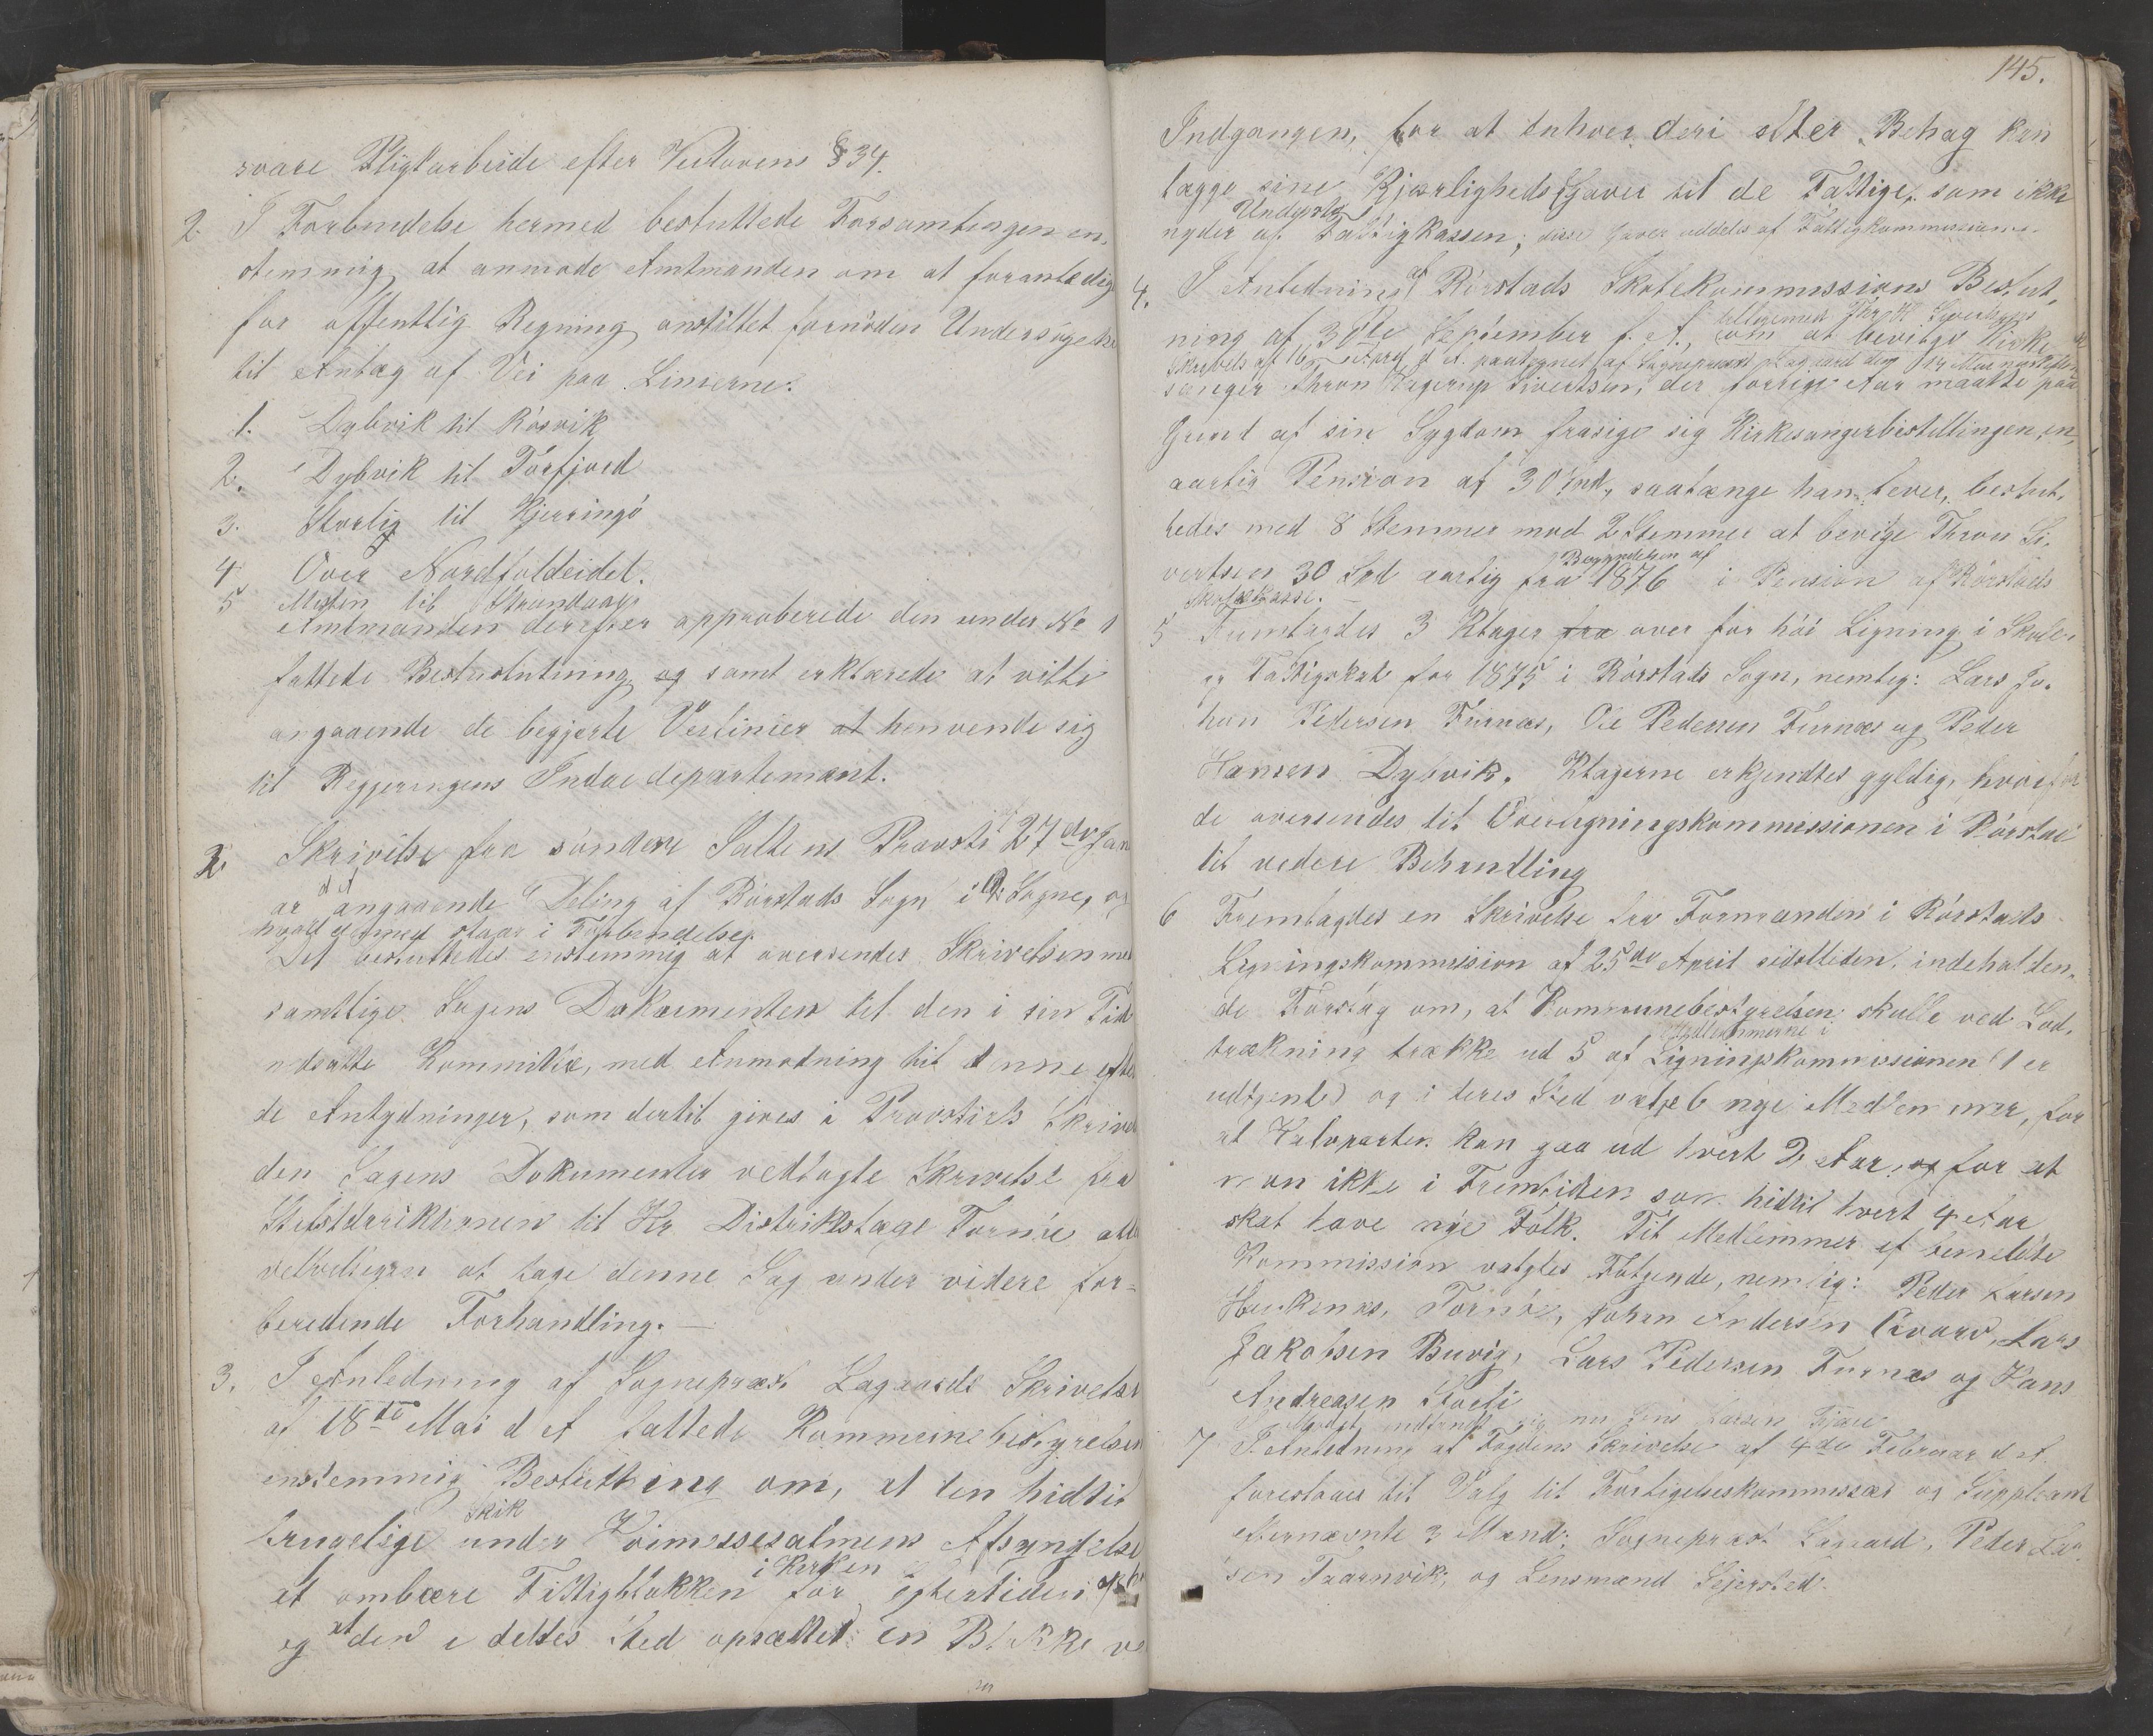 svare Pligtarbeide efter Veilovens § 34.
2. I Forbindelse hermed besluttede Forsamlingen en,
stemmig at anmode Amtmanden om at foranledig
for offentlig Regning anstillet fornöden Undersögelse
til Anlæg af Vei paa Linierne:
1. Dybvik til Rösvik
2. Dybvik til Törfjord
3. Storlig til Kjerringö
4 Over Nordfoldeidet.
5 Misten til Strandaag
Amtmanden derefter approberede den under No 1
fattede Beslutning og samt erklærede at ville
angaaende de begjærte Veilinier at henvende sig
til Regjeringens Indredepartement.
2. Skrivelse fra söndre Saltens Provsti 27de Jan
ar d A angaaende Deling af Rörstads Sogn i 2 Sogne, og
hvad dermed staar i Forbindelse.
Det besluttedes enstemmig at oversendes Skrivelsen med
samtlige Sagens Dokumenter til den i sin Tid
nedsatte Kommitee, med Anmodning til denne efter
de Antydninger, som dertil gives i Provstiets Skrivel
den Sagens Dokumenter vedlagte Skrivelse fra
Stiftsdirektionen til Hr. Distriktslæge Tornöe
velvilligen at tage denne Sag under videre for-
beredende Forhandling. —
3. I Anledning af Sognepræst Lagaards Skrivelse
af 18de Mai d A fattede Kommunebestyrelsen
enstemmig Beslutning om, at den hidtil
brugelige Skik under Höimessesalmens Afsyngelse
at ombære Fattigblokken i Kirken for eftertiden
og at der i dettes Sted opsættes en Blokke ve
145.
Indgangen, for at Enhver deri efter Behag kan
lægge sine Kjærligheds Gaver til de Fattige, som ikke
nyder Underst af Fattigkassen; disse Gaver uddeles af Fattigkommissionen.
4. I Anledning af Rörstads Skolekommissions Beslut,
ning af 30te September f. A., om at bevilge Kirke
Skrivelse af 16 April d A. paategnet af Sognepræst Lagaard
sanger Thron Hagerup Sivertsen, der forrige Aar maatte paa
Grund af sin Sygdom frasige sig Kirkesangerbestillingen, en
aarlig Pension af 30 Spd., saalænge han lever, beslut,
tedes med 8 Stemmer mod 2 Stemmer at bevilge Thron Si,
vertsen 30 Spd aarlig fra Begyndelsen af 1876 i Pension af Rörstads
Skolekasse.
5 Fremlagdes 3 Klager fra over for höi Ligning i Skole
og Fattigskat for 1875 i Rörstads Sogn, nemlig: Lars Jo,
han Pedersen Furnæs, Ole Pedersen Furnæs og Peder
Hansen Dybvik. Klagerne erkjendtes gyldig, hvorfor
de oversendes til Overligningskommissionen i Rörstad
til videre Behandling
6 Fremlagdes en Skrivelse fra Formanden i Rörstads
Ligningskommission af 25de April sidstleden, indeholden,
de Forslag om, at Kommunebestyrelsen skulle ved Lod,
trækning trække ud 5 af Medlemmerne i Ligningskommissionen (1 er
udtjent) og i deres Sted vælge 6 nye Medlemmer, for
at Halvparten kan gaa ud hvert 2. Aar, og for at
man ikke i Fremtiden som hidtil hvert 4 Aar
skal have nye Folk. Til Medlemmer af bemeldte
Kommission valgtes Fölgende, nemlig: Peder Larsen
Tornöe, Johan Andersen Qvarv, Lars
Jakobsen Buvig, Lars Pedersen Furnæs og Hans
Andreasen
Mödet indfandt sig nu Jens Larsen
7 I Anledning af Fogdens Skrivelse af 4de Februar d A.
forestaaes til Valg til Forligelseskommissær og Suppleant
efternævnte 3 Mænd: Sognepræst Lagaard, Peder Lar,
sen Taarnvik, og Lensmand Sejersted.